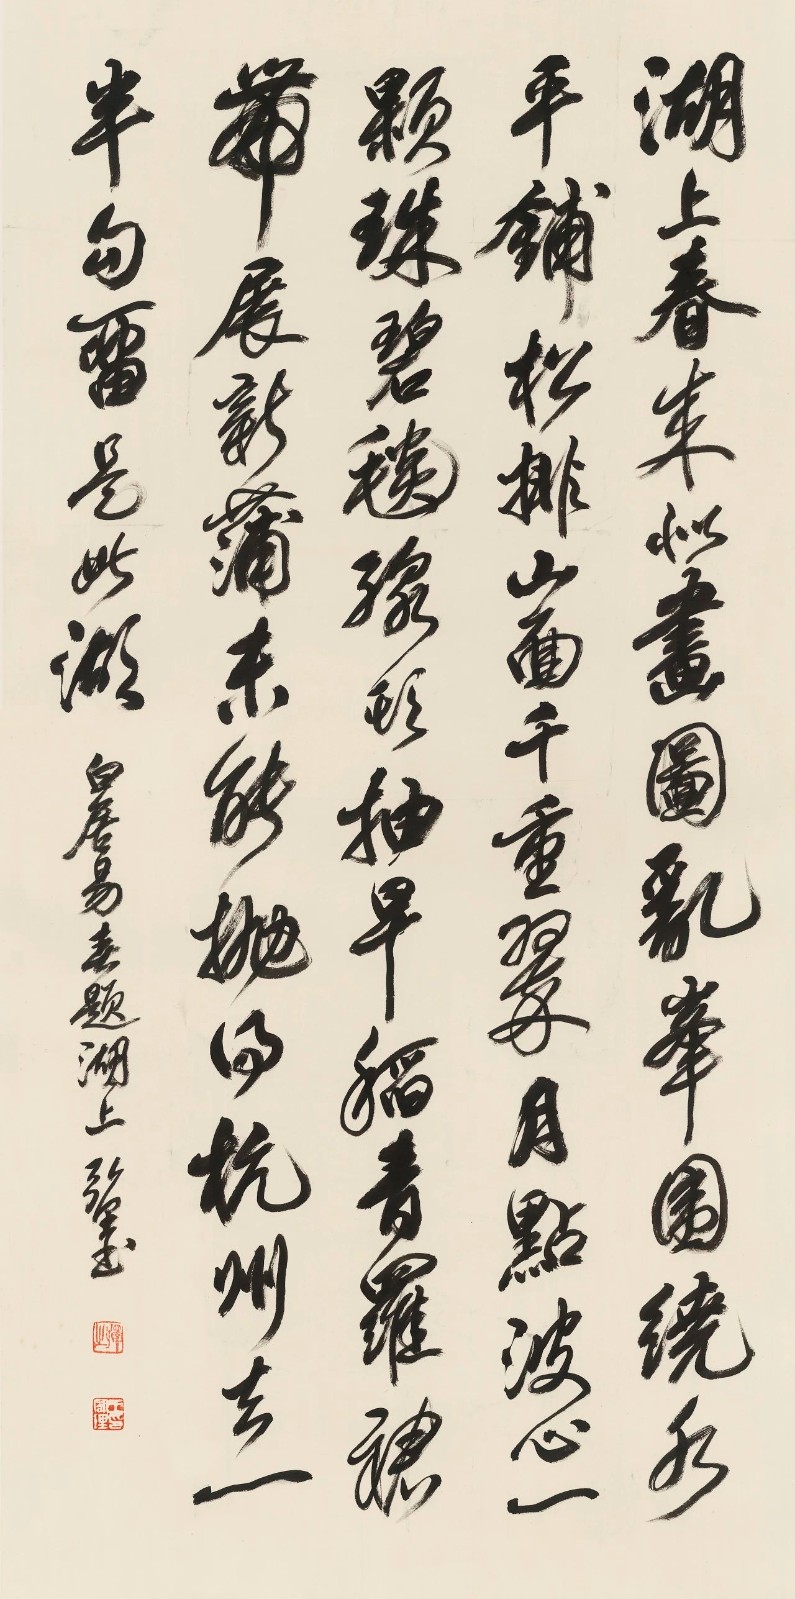 湖上春来似畫圖亂峯圍繞水
平鋪松排山面千重翠月點波心一
顆珠碧毯線頭抽早稻青羅裙
帶展新蒲未能抛得杭州去一
半勾留是此湖
白居易春題湖上